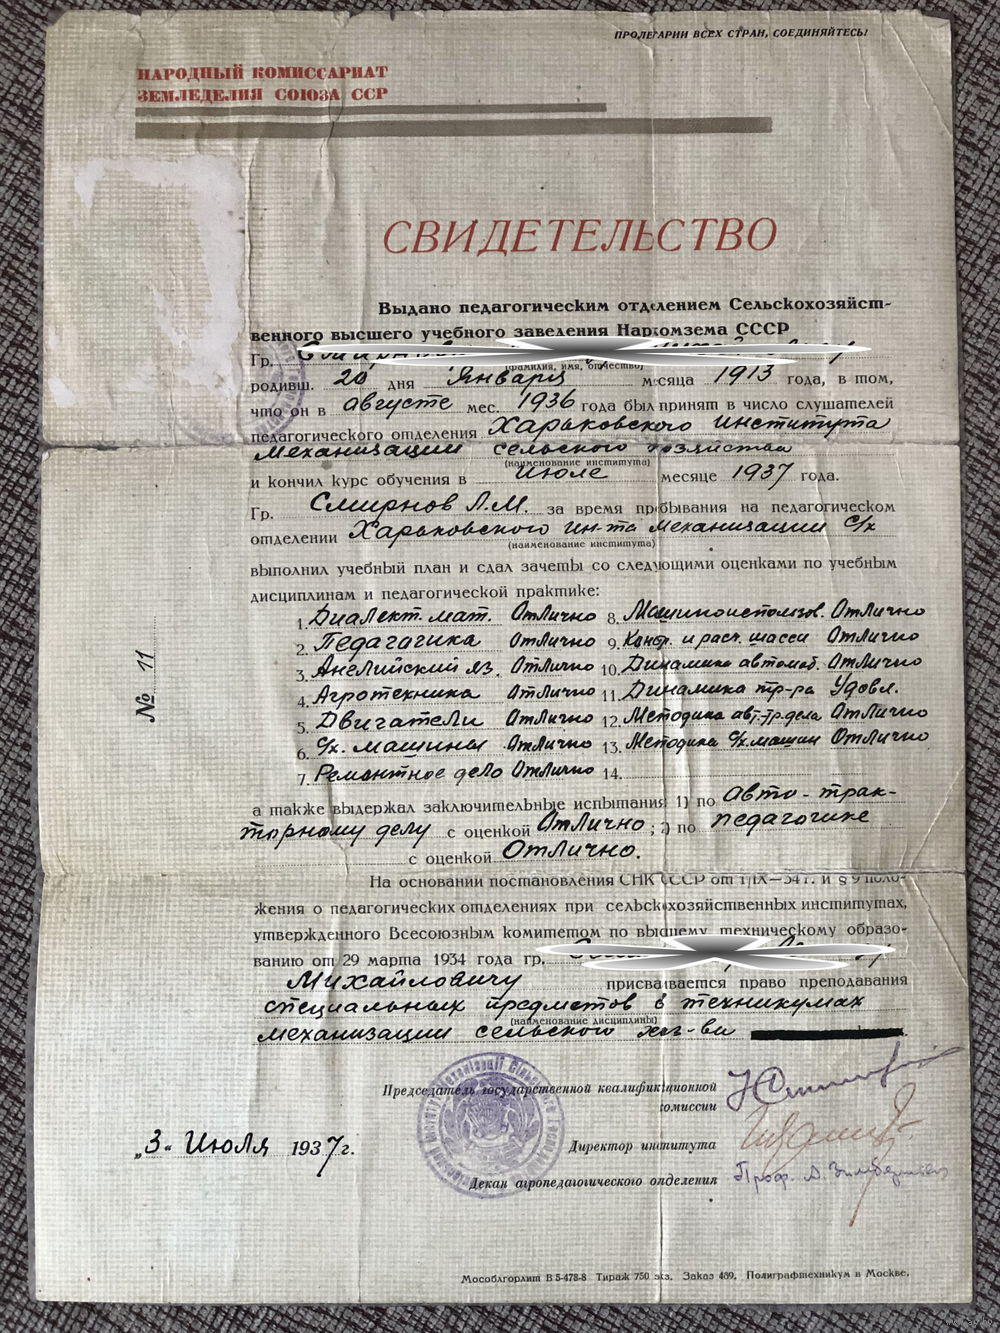 ПРОЛЕТАРИИ ВСЕХ СТРАН, СОЕДИНЯЙТЕСЬ!
НАРОДНЫЙ КОМИССАРИАТ
ЗЕМЛЕДЕЛИЯ СОЮЗА ССР
СВИДЕТЕЛЬСТВО
Выдано педагогическим отделением Сельскохозяйст-
венного высшего учебного заведения Наркомзема СССР
Гр.
(фамилия, имя, отчество)
родивш. 20 дня Января месяца 1913 года, в том,
что он в августе мес. 1936 года был принят в число слушателей
педагогического отделения Харьковского Института
Механизации сельского хозяйства
(наименование института)
и кончил курс обучения в Июле месяце 1937 года.
Гр. Смирнов Л.М. за время пребывания на педагогическом
отделении Харьковского ин-та механизации с/х
(наименование института)
выполнил учебный план и сдал зачеты со следующими оценками по учебным
дисциплинам и педагогической практике:
1. Диалект. мат. Отлично 8. Машиноиспольз. Отлично
2. Педагагика Отлично 9. Констр. и расч. шасси Отлично
3. Английский яз. Отлично 10. Динамика автомоб. Отлично
4. Агротехника Отлично 11. Динамика тр-ра Удовл.
5. Двигатели Отлично 12. Методика авт.-тр. дела Отлично
6. С/х. машины Отлично 13. Методика с/х. машин Отлично
7. Ремонтное дело Отлично 14.
№ 11
а также выдержал заключительные испытания: 1) по Авто-трак-
торному делу с оценкой Отлично; 2) по педагогике
с оценкой Отлично.
На основании постановления СНК СССР от 1/IX—34 г. и § 9 поло-
жения о педагогических отделениях при сельскохозяйственных институтах,
утвержденного Всесоюзным комитетом по высшему техническому образо-
ванию от 29 марта 1934 года гр.
Михайловичу присваивается право преподавания
специальных предметов в техникумах
(наименование дисциплины)
механизации сельского хоз-ва
Председатель государственной квалификационной
комиссии
Директор института
„3“ Июля 1937 г.
Декан агропедагогического отделения
Проф. А.
Мособлгорлит В 5-478-8 Тираж 750 экз. Заказ 489. Полиграфтехникум в Москве.